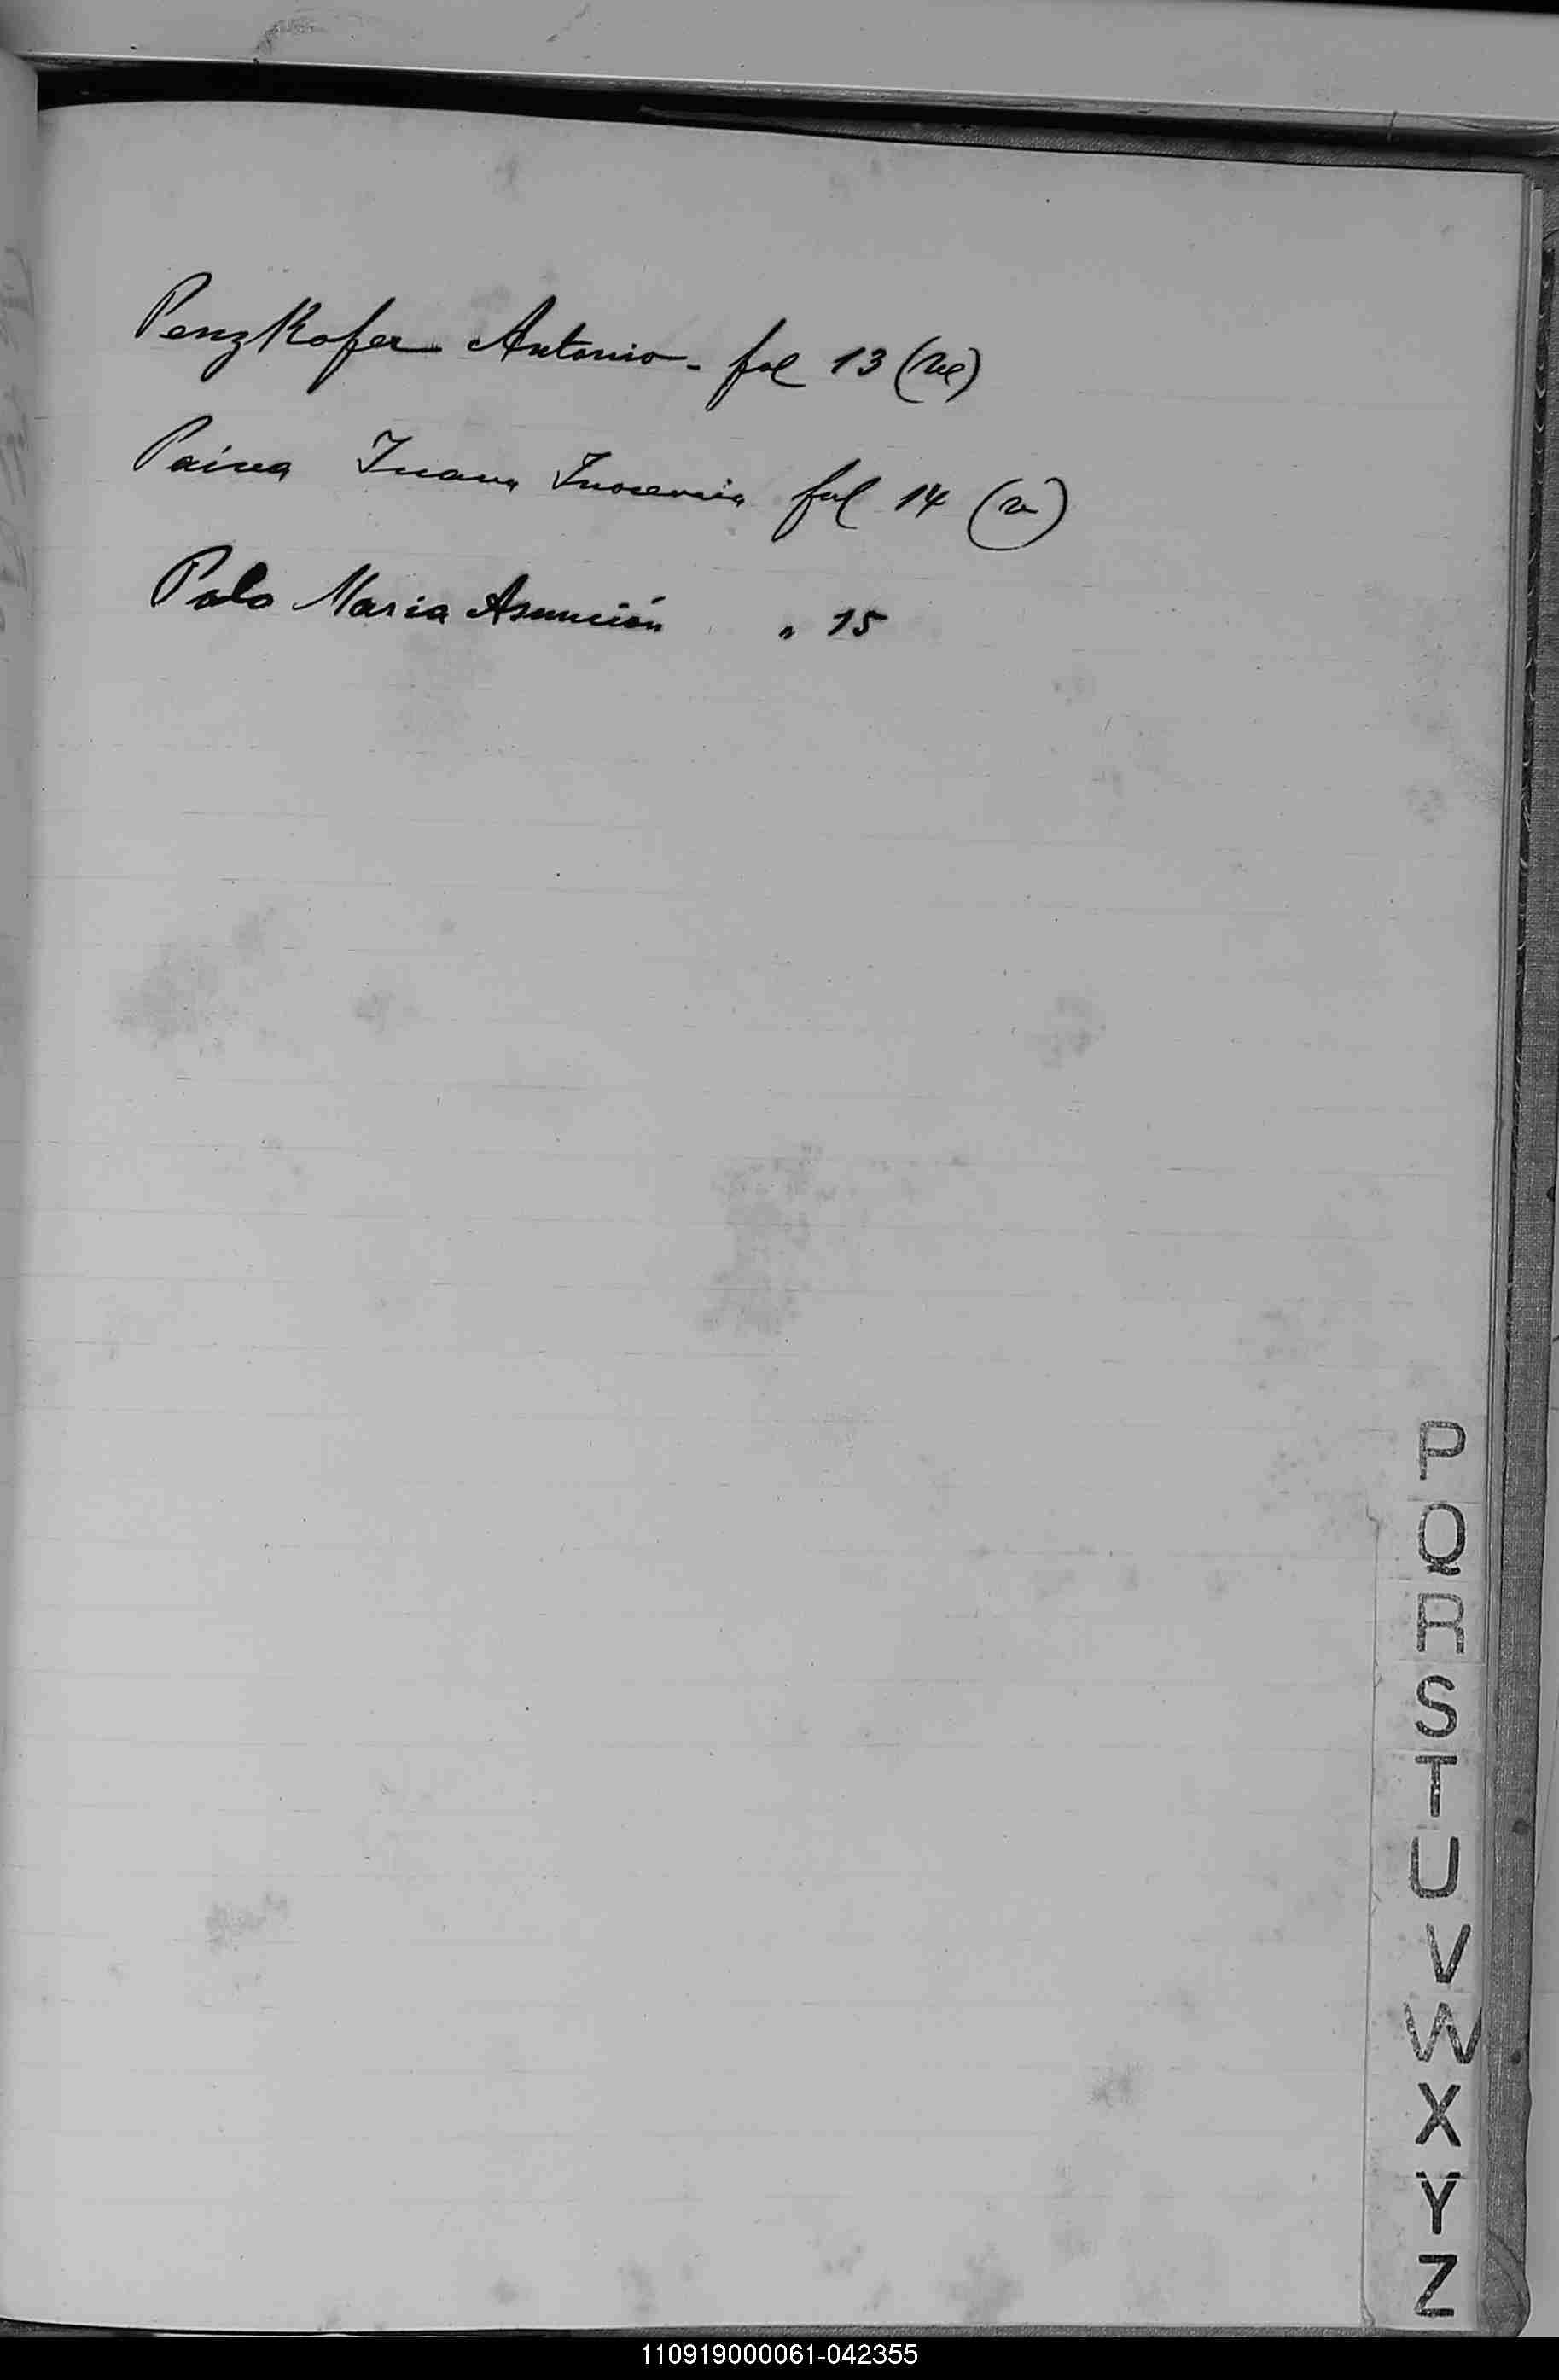 Penzkofer Antonio - fol 13 (ve)
Paiva Juana Inocencia fol 14 (v)
Polo Maria Asunción " 15
P
Q
R
S
T
U
V
W
X
Y
Z
110919000061-042355